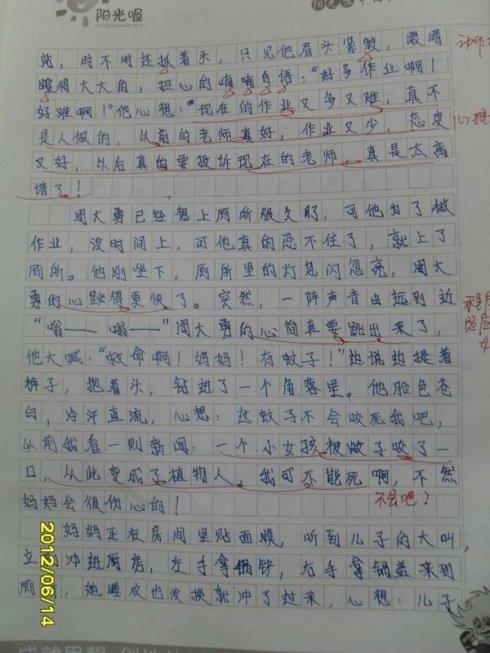 阳光喔
站，时不时还抓着头，只见他眉头紧皱，眼睛
瞪得大大的，担心的喃喃自语："好多作业啊！
好难啊！"他心想："现在的作业又多又难，真不
是人做的，以前的老师真好，作业又少，态度
又好，以后真的要投诉现在的老师，真是太离
谱了！
周大勇已经想上厕所很久了，可他为了做
作业，没时间上，可他真的忍不住了，就上了
厕所。他刚坐下，厕所里的灯忽闪忽亮，周大
勇的心跳得更快了。突然，一阵声音由远到近
"嗡——嗡——"周大勇的心简真要跳出来了，
他大喊："救命啊！妈妈！有蚊子！"边说边提着
裤子，抱着头，钻进了一个角落里。他脸色苍
白，冷汗直流，心想：这蚊子不会咬死我吧，
以前我看一则新闻：一个小女孩被蚊子咬了一
口，从此变成了植物人，我可不能死啊，不然
妈妈会很伤心的！
不会吧？
妈妈正在房间里贴面膜，听到儿子的大叫，
立 冲进厨房，左手拿锅铲，右手拿锅盖来到
厕 ，她 也没换就冲了过来，心想：儿子
2012/06/14